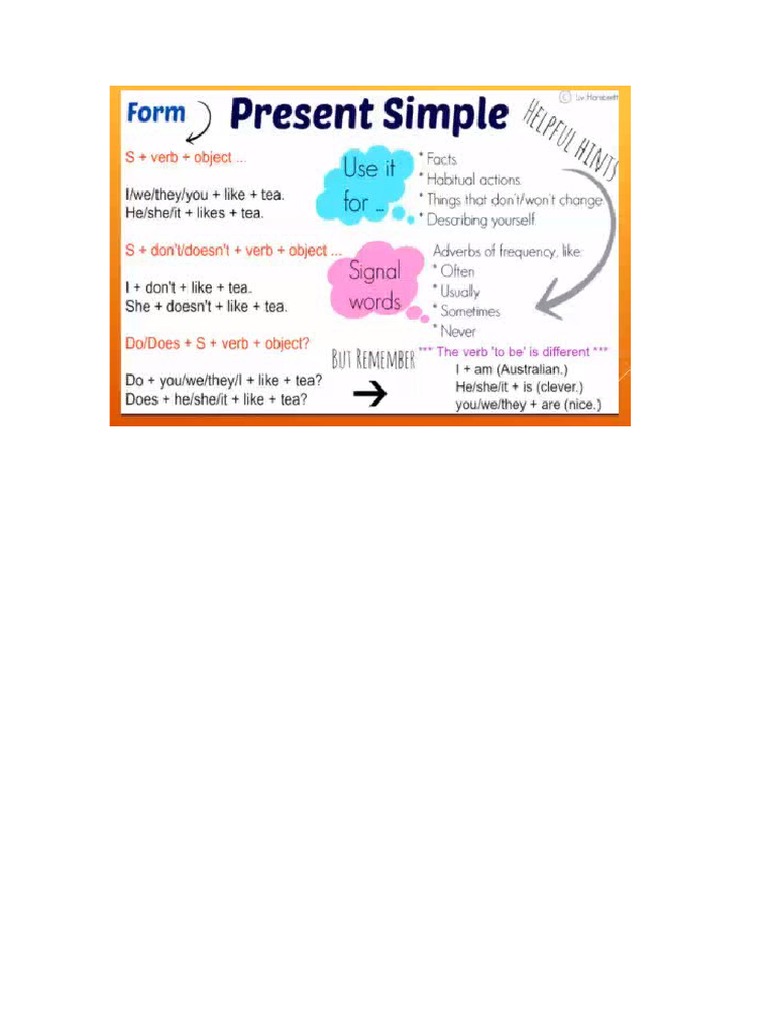 Form
Present Simple
HELPFUL HINTS
S + verb + object ...
I/we/they/you + like + tea.
He/she/it + likes + tea.
S + don't/doesn't + verb + object ...
I + don't + like + tea.
She + doesn't + like + tea.
Do/Does + S + verb + object?
Do + you/we/they/I + like + tea?
Does + he/she/it + like + tea?
Use it
for ...
* Facts.
* Habitual actions.
* Things that don't/won't change.
* Describing yourself.
Signal
words
Adverbs of frequency, like:
* Often
* Usually
* Sometimes
* Never
BUT REMEMBER
*** The verb 'to be' is different ***
I + am (Australian.)
He/she/it + is (clever.)
you/we/they + are (nice.)